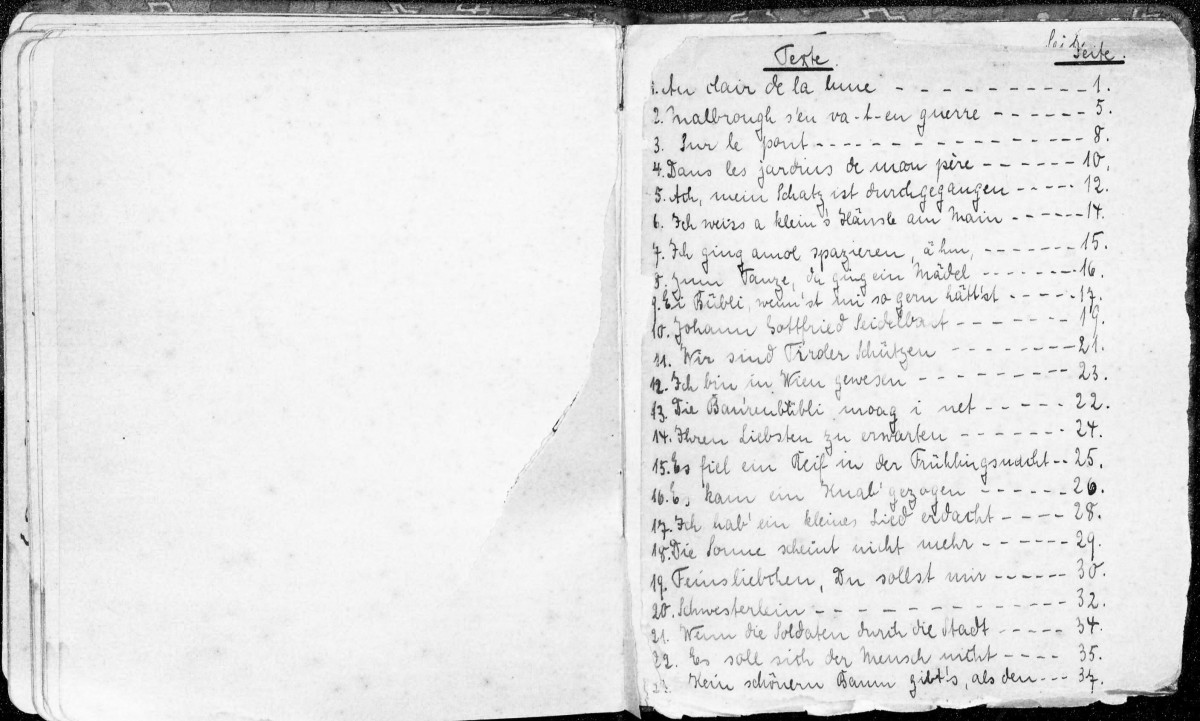 Texte. Seite.
1. Au clair de la lune - - - - - - - - - - 1.
2. Malbrough s'en va-t-en guerre - - - - - - 5.
3. Sur le pont - - - - - - - - - - - - - - - 8.
4. Dans les jardins de mon père - - - - - - 10.
5. Ach, mein Schatz ist durchgegangen - - - - 12.
6. Ich weiss a klein's Häusle am Main - - - - - 14.
7. Ich ging amol spazieren, ähm, - - - - - - - 15.
8. Zum Tanze, da ging ein Mädel - - - - - - - 16.
9. Ei Bübli, wenn'st mi so gern hätt'st - - - - - 17.
10. Johann Gottfried Seidelbart - - - - - - - 19.
11. Wir sind Tiroler Schützen - - - - - - - - 21.
12. Ich bin in Wien gewesen - - - - - - - - 23.
13. Die Bau'renbübli moag i net - - - - - 22.
14. Ihren Liebsten zu erwarten - - - - - - - 24.
15. Es fiel ein Reif in der Frühlingsnacht - - 25.
16. Es kam ein Knab' gezogen - - - - - - 26.
17. Ich hab' ein kleines Lied erdacht - - - - - 28.
18. Die Sonne scheint nicht mehr - - - - - - 29.
19. Feinsliebchen, Du sollst mir - - - - - - 30.
20. Schwesterlein - - - - - - - - - - - - - 32.
21. Wenn die Soldaten durch die Stadt - - - - - 34.
22. Es soll sich der Mensch nicht - - - - 35.
23. Kein schönern Baum gibt's, als den - - - 37.